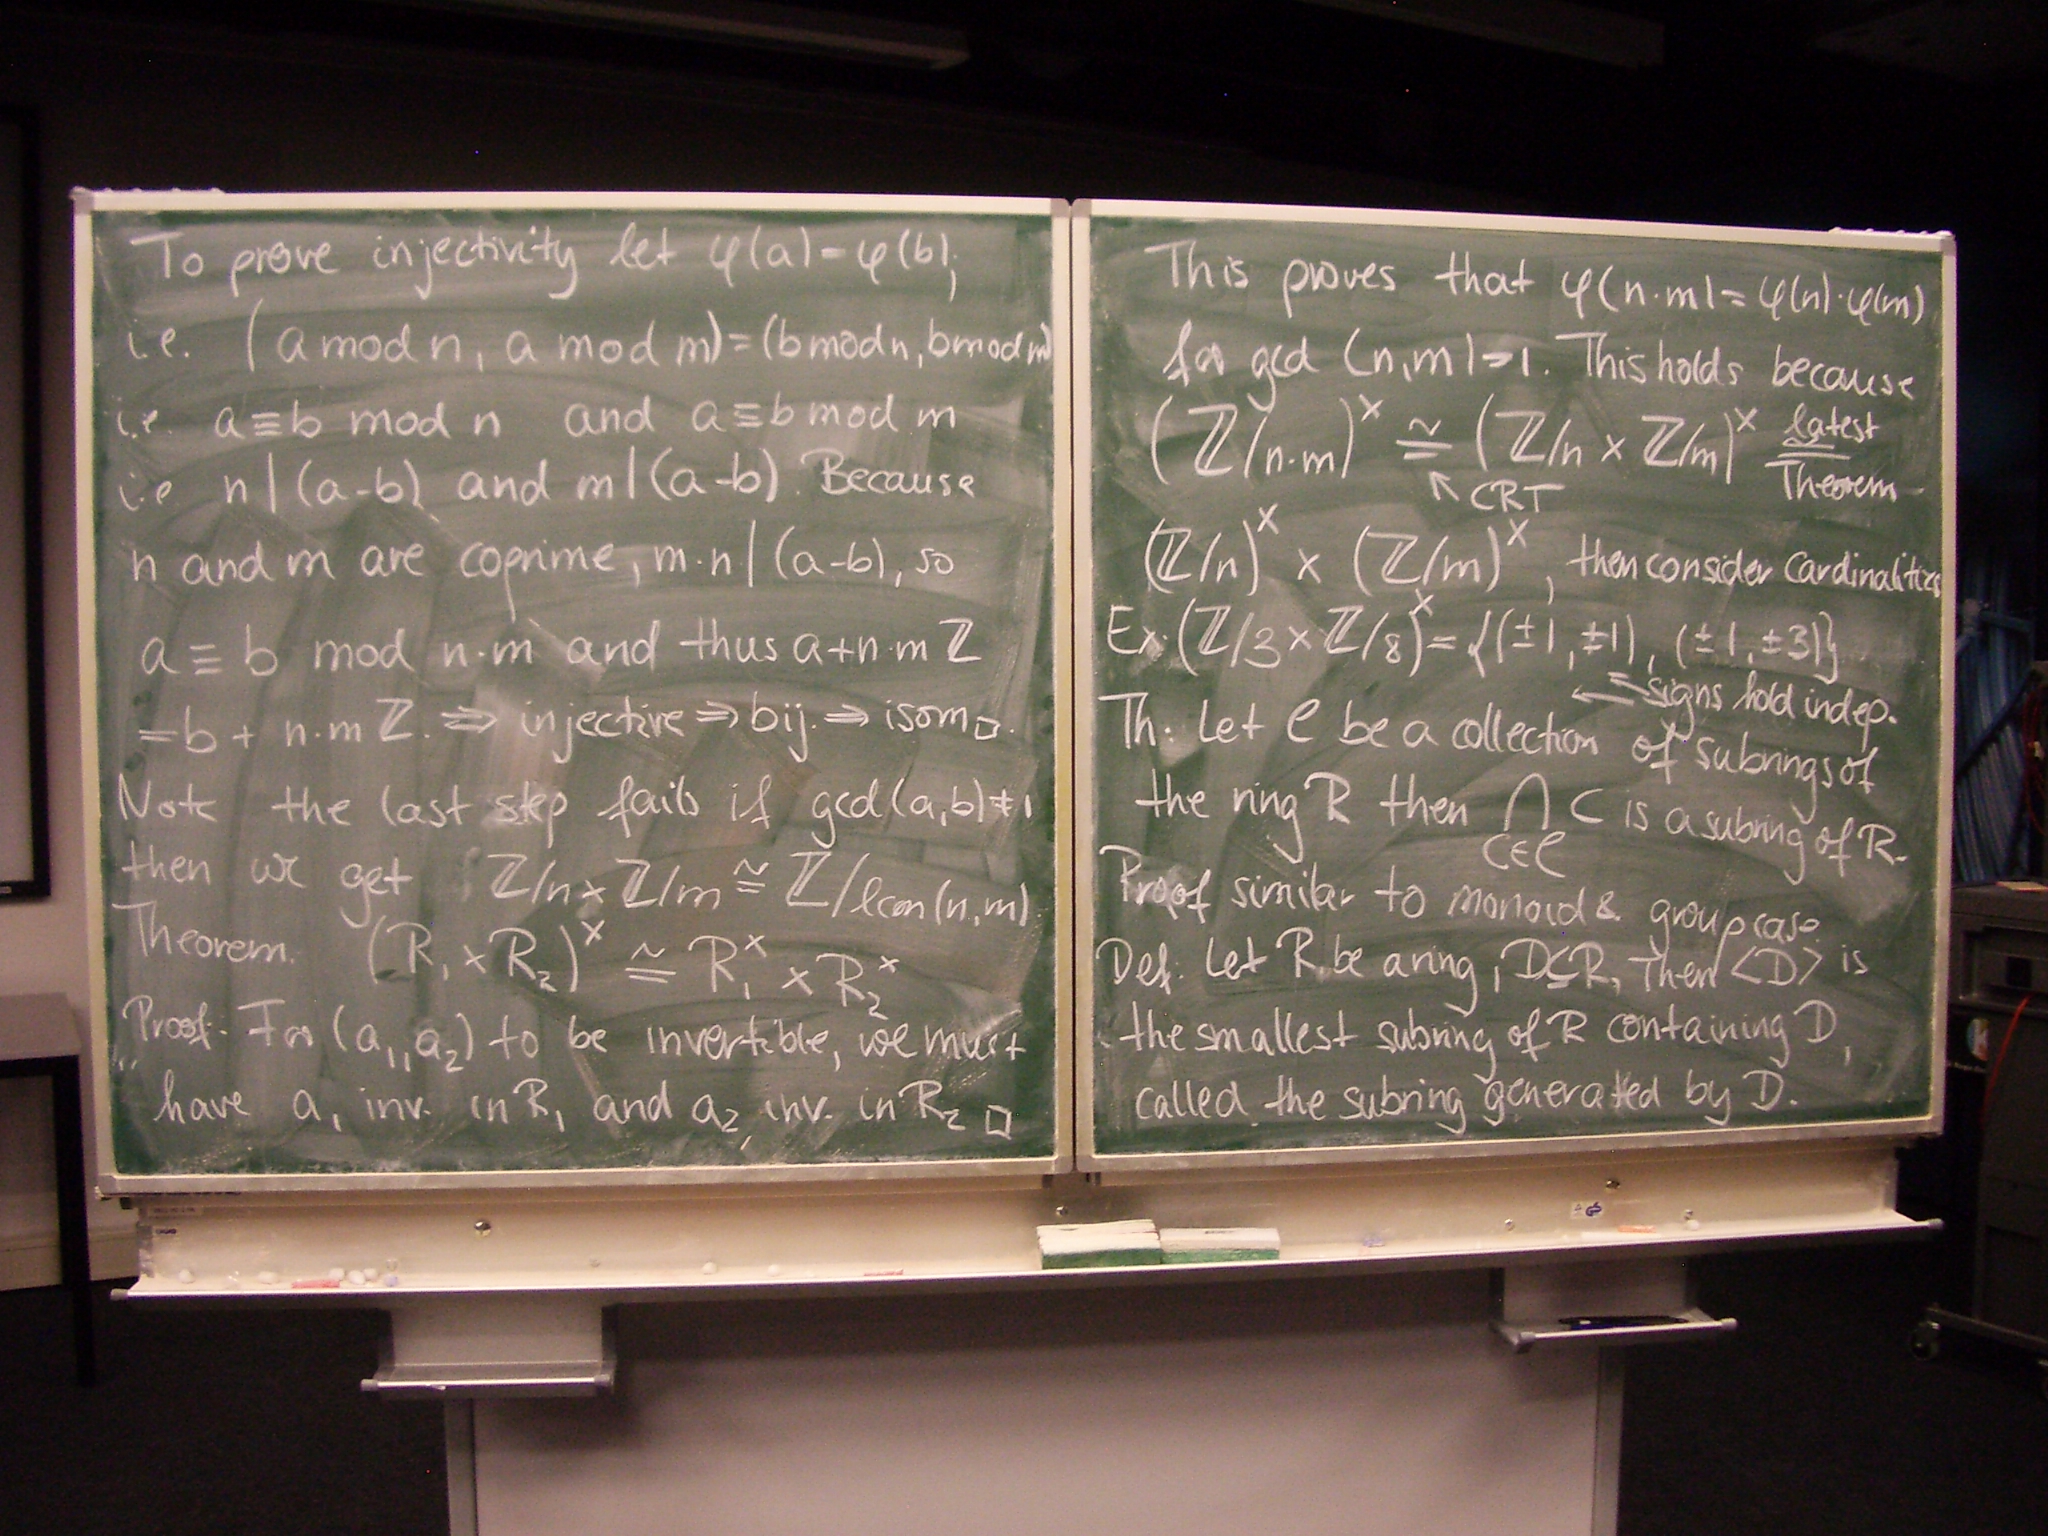 To prove injectivity let φ(a)=φ(b),
i.e. (a mod n, a mod m)=(b mod n, b mod m)
i.e. a≡b mod n and a≡b mod m
i.e n|(a-b) and m|(a-b). Because
n and m are coprime, m·n|(a-b), so
a ≡ b mod n·m and thus a+n·m ℤ
=b + n·m ℤ. ⇒ injective ⇒ bij. ⇒ isom □.
Note the last step fails if gcd(a,b)≠1
then we get ℤ/n × ℤ/m ≅ ℤ/lcm(n,m)
Theorem. (R₁ × R₂)ˣ ≅ R₁ˣ × R₂ˣ
Proof: For (a₁, a₂) to be invertible, we must
have a₁ inv. in R₁ and a₂ inv. in R₂ □
This proves that φ(n·m)=φ(n)·φ(m)
for gcd (n,m)=1. This holds because
(ℤ/n·m)ˣ ≅ (ℤ/n × ℤ/m)ˣ latest
↖ CRT Theorem
(ℤ/n)ˣ × (ℤ/m)ˣ, then consider cardinalities
Ex: (ℤ/3 × ℤ/8)ˣ = {(±1, ±1), (±1, ±3)}
signs hold indep.
Th: Let C be a collection of subrings of
the ring R then ⋂ C is a subring of R.
C∈C
Proof similar to monoid & group case
Def: Let R be a ring, D⊆R, Then ⟨D⟩ is
the smallest subring of R containing D,
called the subring generated by D.